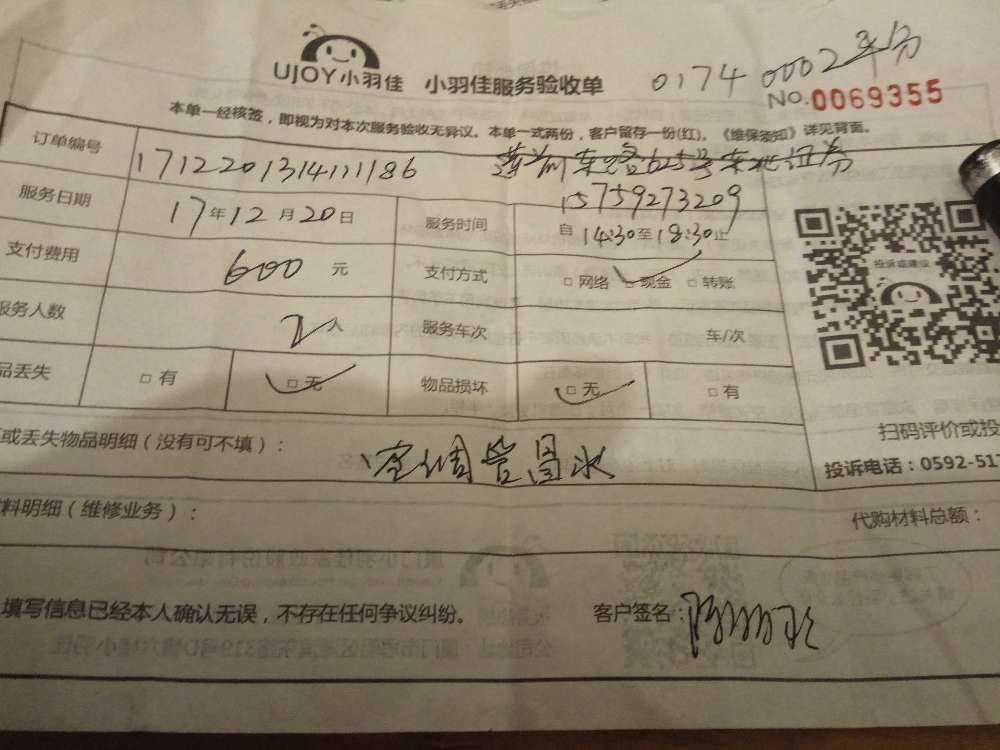 UJOY小羽佳 小羽佳服务验收单
0174 0002
NO.0069355
本单一经核签，即视为对本次服务验收无异议。本单一式两份，客户留存一份(红)。《维保须知》详见背面。
订单编号 171220131411186 莲前东路625号东北证券
15759273209
服务日期 17年12月20日 服务时间 自14:30至18:30止
支付费用 600元 支付方式 □网络 □现金 □转账
服务人数 2人 服务车次 车/次
品丢失 □有 □无 物品损坏 □无 □有
投诉或建议
扫码评价或投
投诉电话：0592-517
或丢失物品明细（没有可不填）：
空调管冒水
料明细（维修业务）： 代购材料总额：
填写信息已经本人确认无误，不存在任何争议纠纷。 客户签名：